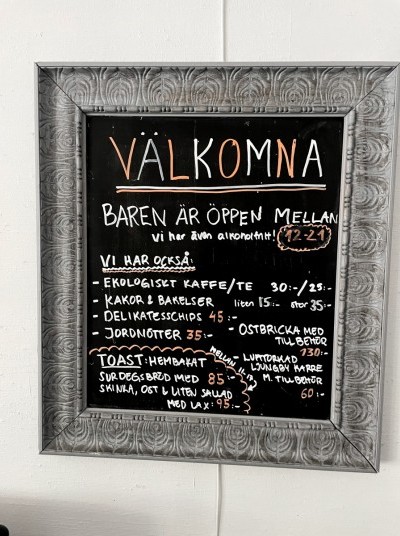 VÄLKOMNA
BAREN ÄR ÖPPEN MELLAN
vi har även alkoholfritt! 12-21
VI HAR OCKSÅ:
- EKOLOGISKT KAFFE/TE 30:-/25:-
- KAKOR & BAKELSER liten 15:- stor 35:-
- DELIKATESSCHIPS 45:-
- JORDNÖTTER 35:-
- OSTBRICKA MED
TILLBEHÖR
130:-
- LUFTTORKAD
LJUNGBY KARRE
M. TILLBEHÖR
60:-
MELLAN 11-17
TOAST: HEMBAKAT
SURDEGSBRÖD MED 85:-
SKINKA, OST & LITEN SALLAD
MED LAX: 95:-